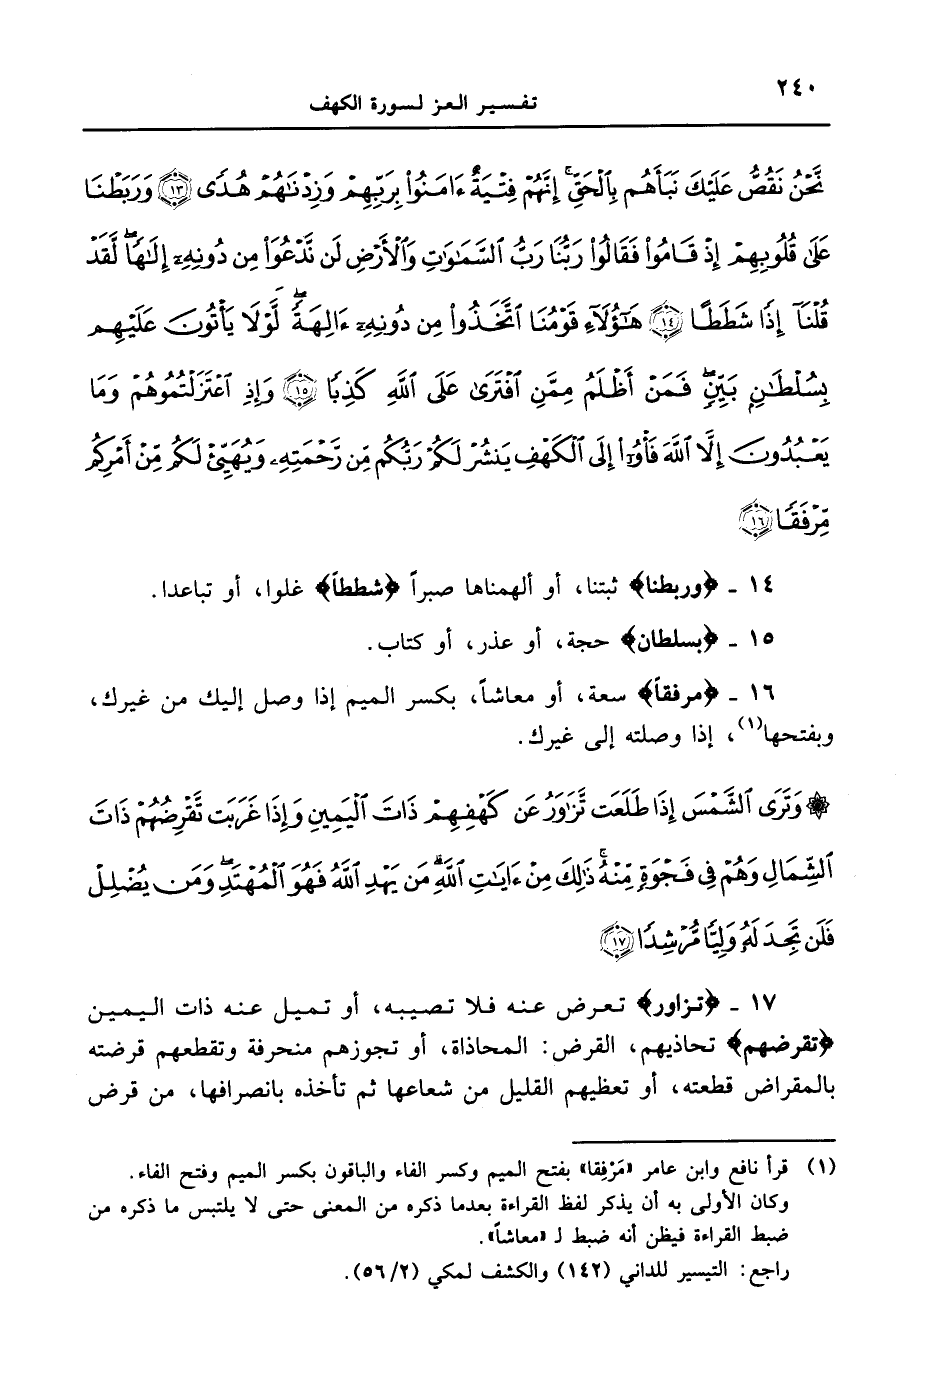 ٢٤٠
تفسير العز لسورة الكهف
نَّحۡنُ نَقُصُّ عَلَيۡكَ نَبَأَهُم بِٱلۡحَقِّۚ إِنَّهُمۡ فِتۡيَةٌ ءَامَنُواْ بِرَبِّهِمۡ وَزِدۡنَٰهُمۡ هُدٗى ١٣ وَرَبَطۡنَا
عَلَىٰ قُلُوبِهِمۡ إِذۡ قَامُواْ فَقَالُواْ رَبُّنَا رَبُّ ٱلسَّمَٰوَٰتِ وَٱلۡأَرۡضِ لَن نَّدۡعُوَاْ مِن دُونِهِۦٓ إِلَٰهٗاۖ لَّقَدۡ
قُلۡنَآ إِذٗا شَطَطًا ١٤ هَٰٓؤُلَآءِ قَوۡمُنَا ٱتَّخَذُواْ مِن دُونِهِۦٓ ءَالِهَةٗۖ لَّوۡلَا يَأۡتُونَ عَلَيۡهِم
بِسُلۡطَٰنِۭ بَيِّنٖۖ فَمَنۡ أَظۡلَمُ مِمَّنِ ٱفۡتَرَىٰ عَلَى ٱللَّهِ كَذِبٗا ١٥ وَإِذِ ٱعۡتَزَلۡتُمُوهُمۡ وَمَا
يَعۡبُدُونَ إِلَّا ٱللَّهَ فَأۡوُۥٓاْ إِلَى ٱلۡكَهۡفِ يَنشُرۡ لَكُمۡ رَبُّكُم مِّن رَّحۡمَتِهِۦ وَيُهَيِّئۡ لَكُم مِّنۡ أَمۡرِكُم
مِّرۡفَقٗا ١٦
١٤ - ﴿وربطنا﴾ ثبتنا، أو ألهمناها صبراً ﴿شططاً﴾ غلوا، أو تباعدا.
١٥ - ﴿بسلطان﴾ حجة، أو عذر، أو كتاب.
١٦ - ﴿مرفقاً﴾ سعة، أو معاشاً، بكسر الميم إذا وصل إليك من غيرك،
وبفتحها(١)، إذا وصلته إلى غيرك.
۞ وَتَرَى ٱلشَّمۡسَ إِذَا طَلَعَت تَّزَٰوَرُ عَن كَهۡفِهِمۡ ذَاتَ ٱلۡيَمِينِ وَإِذَا غَرَبَت تَّقۡرِضُهُمۡ ذَاتَ
ٱلشِّمَالِ وَهُمۡ فِي فَجۡوَةٖ مِّنۡهُۚ ذَٰلِكَ مِنۡ ءَايَٰتِ ٱللَّهِۗ مَن يَهۡدِ ٱللَّهُ فَهُوَ ٱلۡمُهۡتَدِۖ وَمَن يُضۡلِلۡ
فَلَن تَجِدَ لَهُۥ وَلِيّٗا مُّرۡشِدٗا ١٧
١٧ - ﴿تزاور﴾ تعرض عنه فلا تصيبه، أو تميل عنه ذات اليمين
﴿تقرضهم﴾ تحاذيهم، القرض: المحاذاة، أو تجوزهم منحرفة وتقطعهم قرضته
بالمقراض قطعته، أو تعظيهم القليل من شعاعها ثم تأخذه بانصرافها، من قرض
(١) قرأ نافع وابن عامر «مَرْفِقا» بفتح الميم وكسر الفاء والباقون بكسر الميم وفتح الفاء.
وكان الأولى به أن يذكر لفظ القراءة بعدما ذكره من المعنى حتى لا يلتبس ما ذكره من
ضبط القراءة فيظن أنه ضبط لـ «معاشاً».
راجع: التيسير للداني (١٤٢) والكشف لمكي (٥٦/٢).